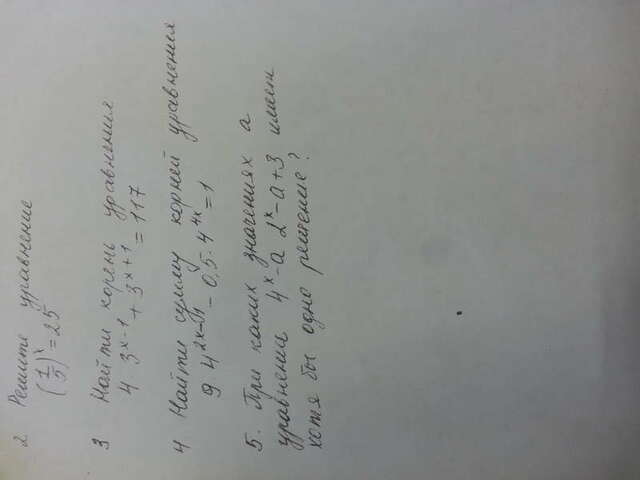 2 Решите уравнение
(1/5)^x = 25
3 Найти корень уравнения
4 3^{x-1} + 3^{x+1} = 117
4 Найти сумму корней уравнения
9 4^{2x-1} - 0,5 · 4^{4x} = 1
5. При каких значениях а
уравнение 4^x - a 2^x - a + 3 имеет
хотя бы одно решение?